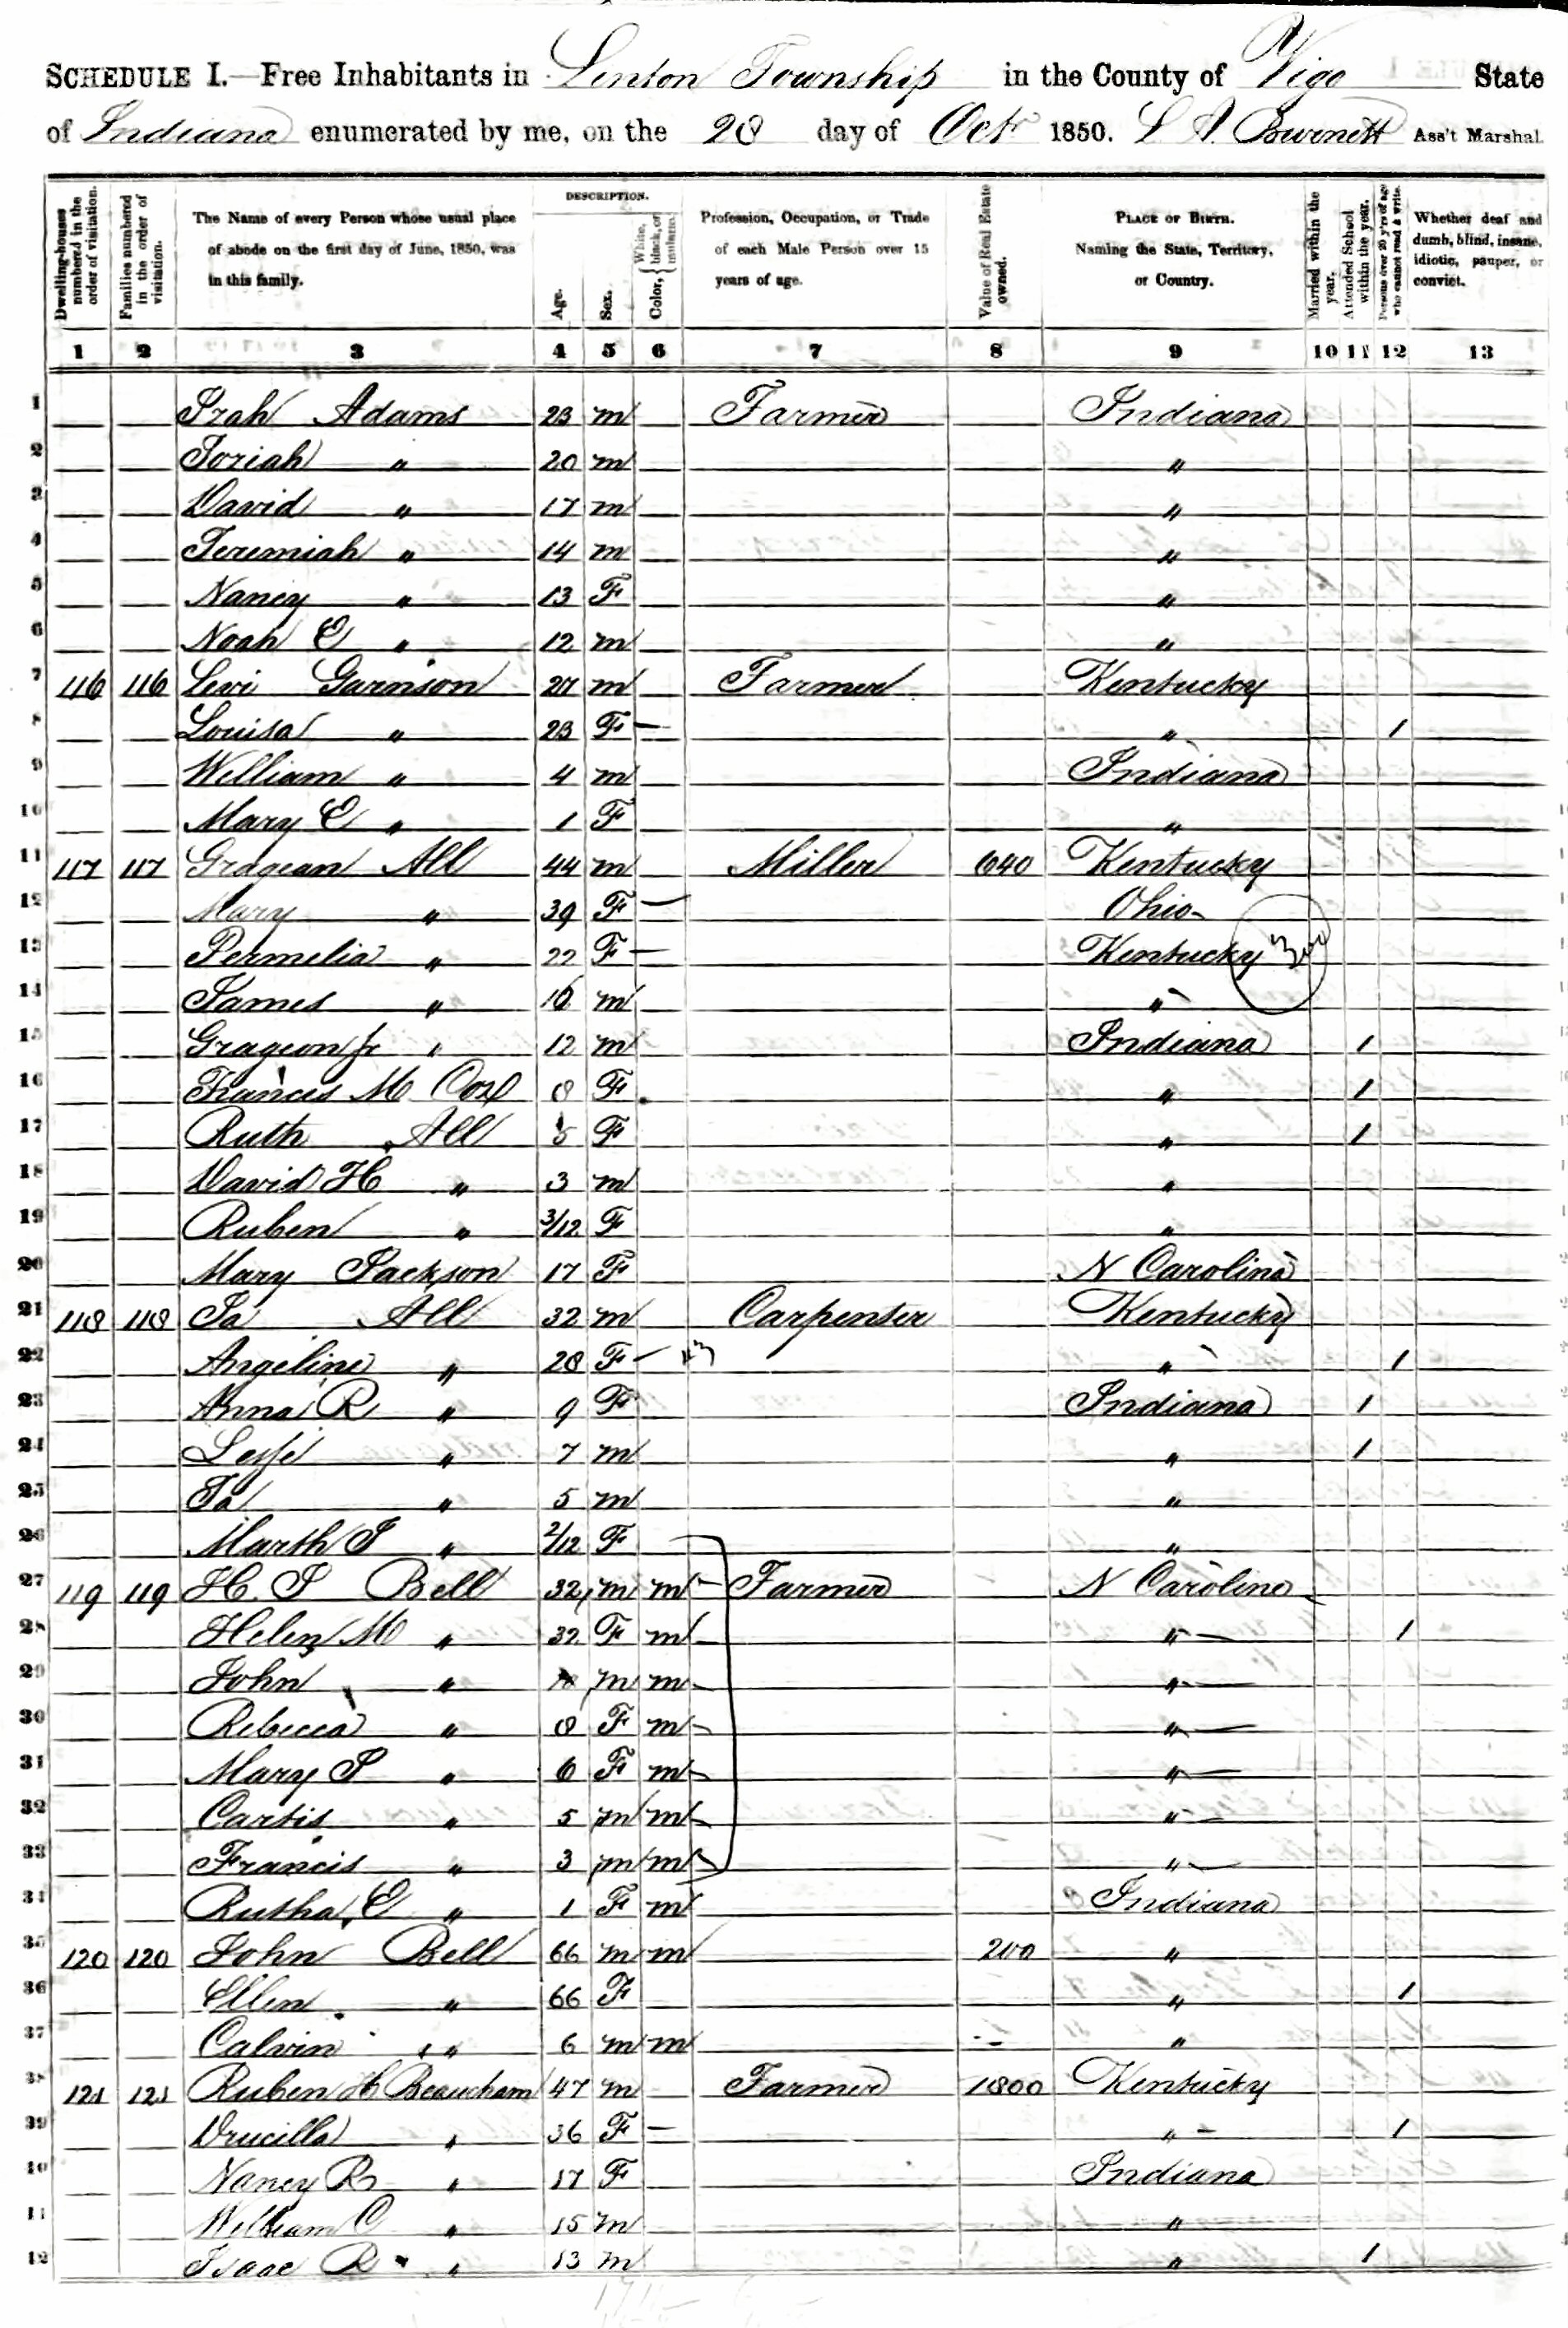 SCHEDULE I.—Free Inhabitants in Linton Township in the County of Vigo State
of Indiana enumerated by me, on the 28 day of Oct 1850. L A. Burnett Ass't Marshal.
Dwelling-houses numbered in the order of visitation.
Families numbered in the order of visitation.
The Name of every Person whose usual place of abode on the first day of June, 1850, was in this family.
DESCRIPTION.
Age.
Sex.
Color, { White, black, or mulatto.
Profession, Occupation, or Trade of each Male Person over 15 years of age.
Value of Real Estate owned.
PLACE OF BIRTH. Naming the State, Territory, or Country.
Married within the year.
Attended School within the year.
Persons over 20 y'rs of age who cannot read & write.
Whether deaf and dumb, blind, insane, idiotic, pauper, or convict.
1 2 3 4 5 6 7 8 9 10 11 12 13
1 Adams 23 m Farmer Indiana
2 Josiah " 20 m "
3 David " 17 m "
4 Jeremiah " 14 m "
5 Nancy " 13 F "
6 Noah E " 12 m "
7 116 116 Levi Garrison 27 m Farmer Kentucky
8 Louisa " 23 F — " 1
9 William " 4 m Indiana
10 Mary E " 1 F "
11 117 117 All 44 m Miller 640 Kentucky
12 Mary " 39 F — Ohio
13 Permelia " 22 F — Kentucky
14 James " 16 m "
15 Grageon Jr " 12 m Indiana 1
16 Frances M Cox 8 F " 1
17 Ruth All 5 F " 1
18 David H " 3 m "
19 Ruben " 3/12 F "
20 Mary Jackson 17 F N Carolina
21 118 118 Ja All 32 m Carpenter Kentucky
22 Angeline " 28 F — " 1
23 Anna R " 9 F Indiana 1
24 " 7 m " 1
25 Ja " 5 m "
26 Marth J " 2/12 F "
27 119 119 H. J Bell 32 m m Farmer N Carolina
28 Helen M " 32 F m " 1
29 John " m m "
30 Rebecca " 8 F m "
31 Mary J " 6 F m "
32 Cartis " 5 m m "
33 Francis " 3 m m "
34 Rutha E " 1 F m Indiana
35 120 120 John Bell 66 m m 200 "
36 Ellen " 66 F " 1
37 Calvin " 6 m m "
38 121 121 Ruben H Beaucham 47 m Farmer 1800 Kentucky
39 Drucilla " 36 F — " 1
40 Nancy R " 17 F Indiana
41 William C " 15 m "
42 Isaac R " 13 m " 1